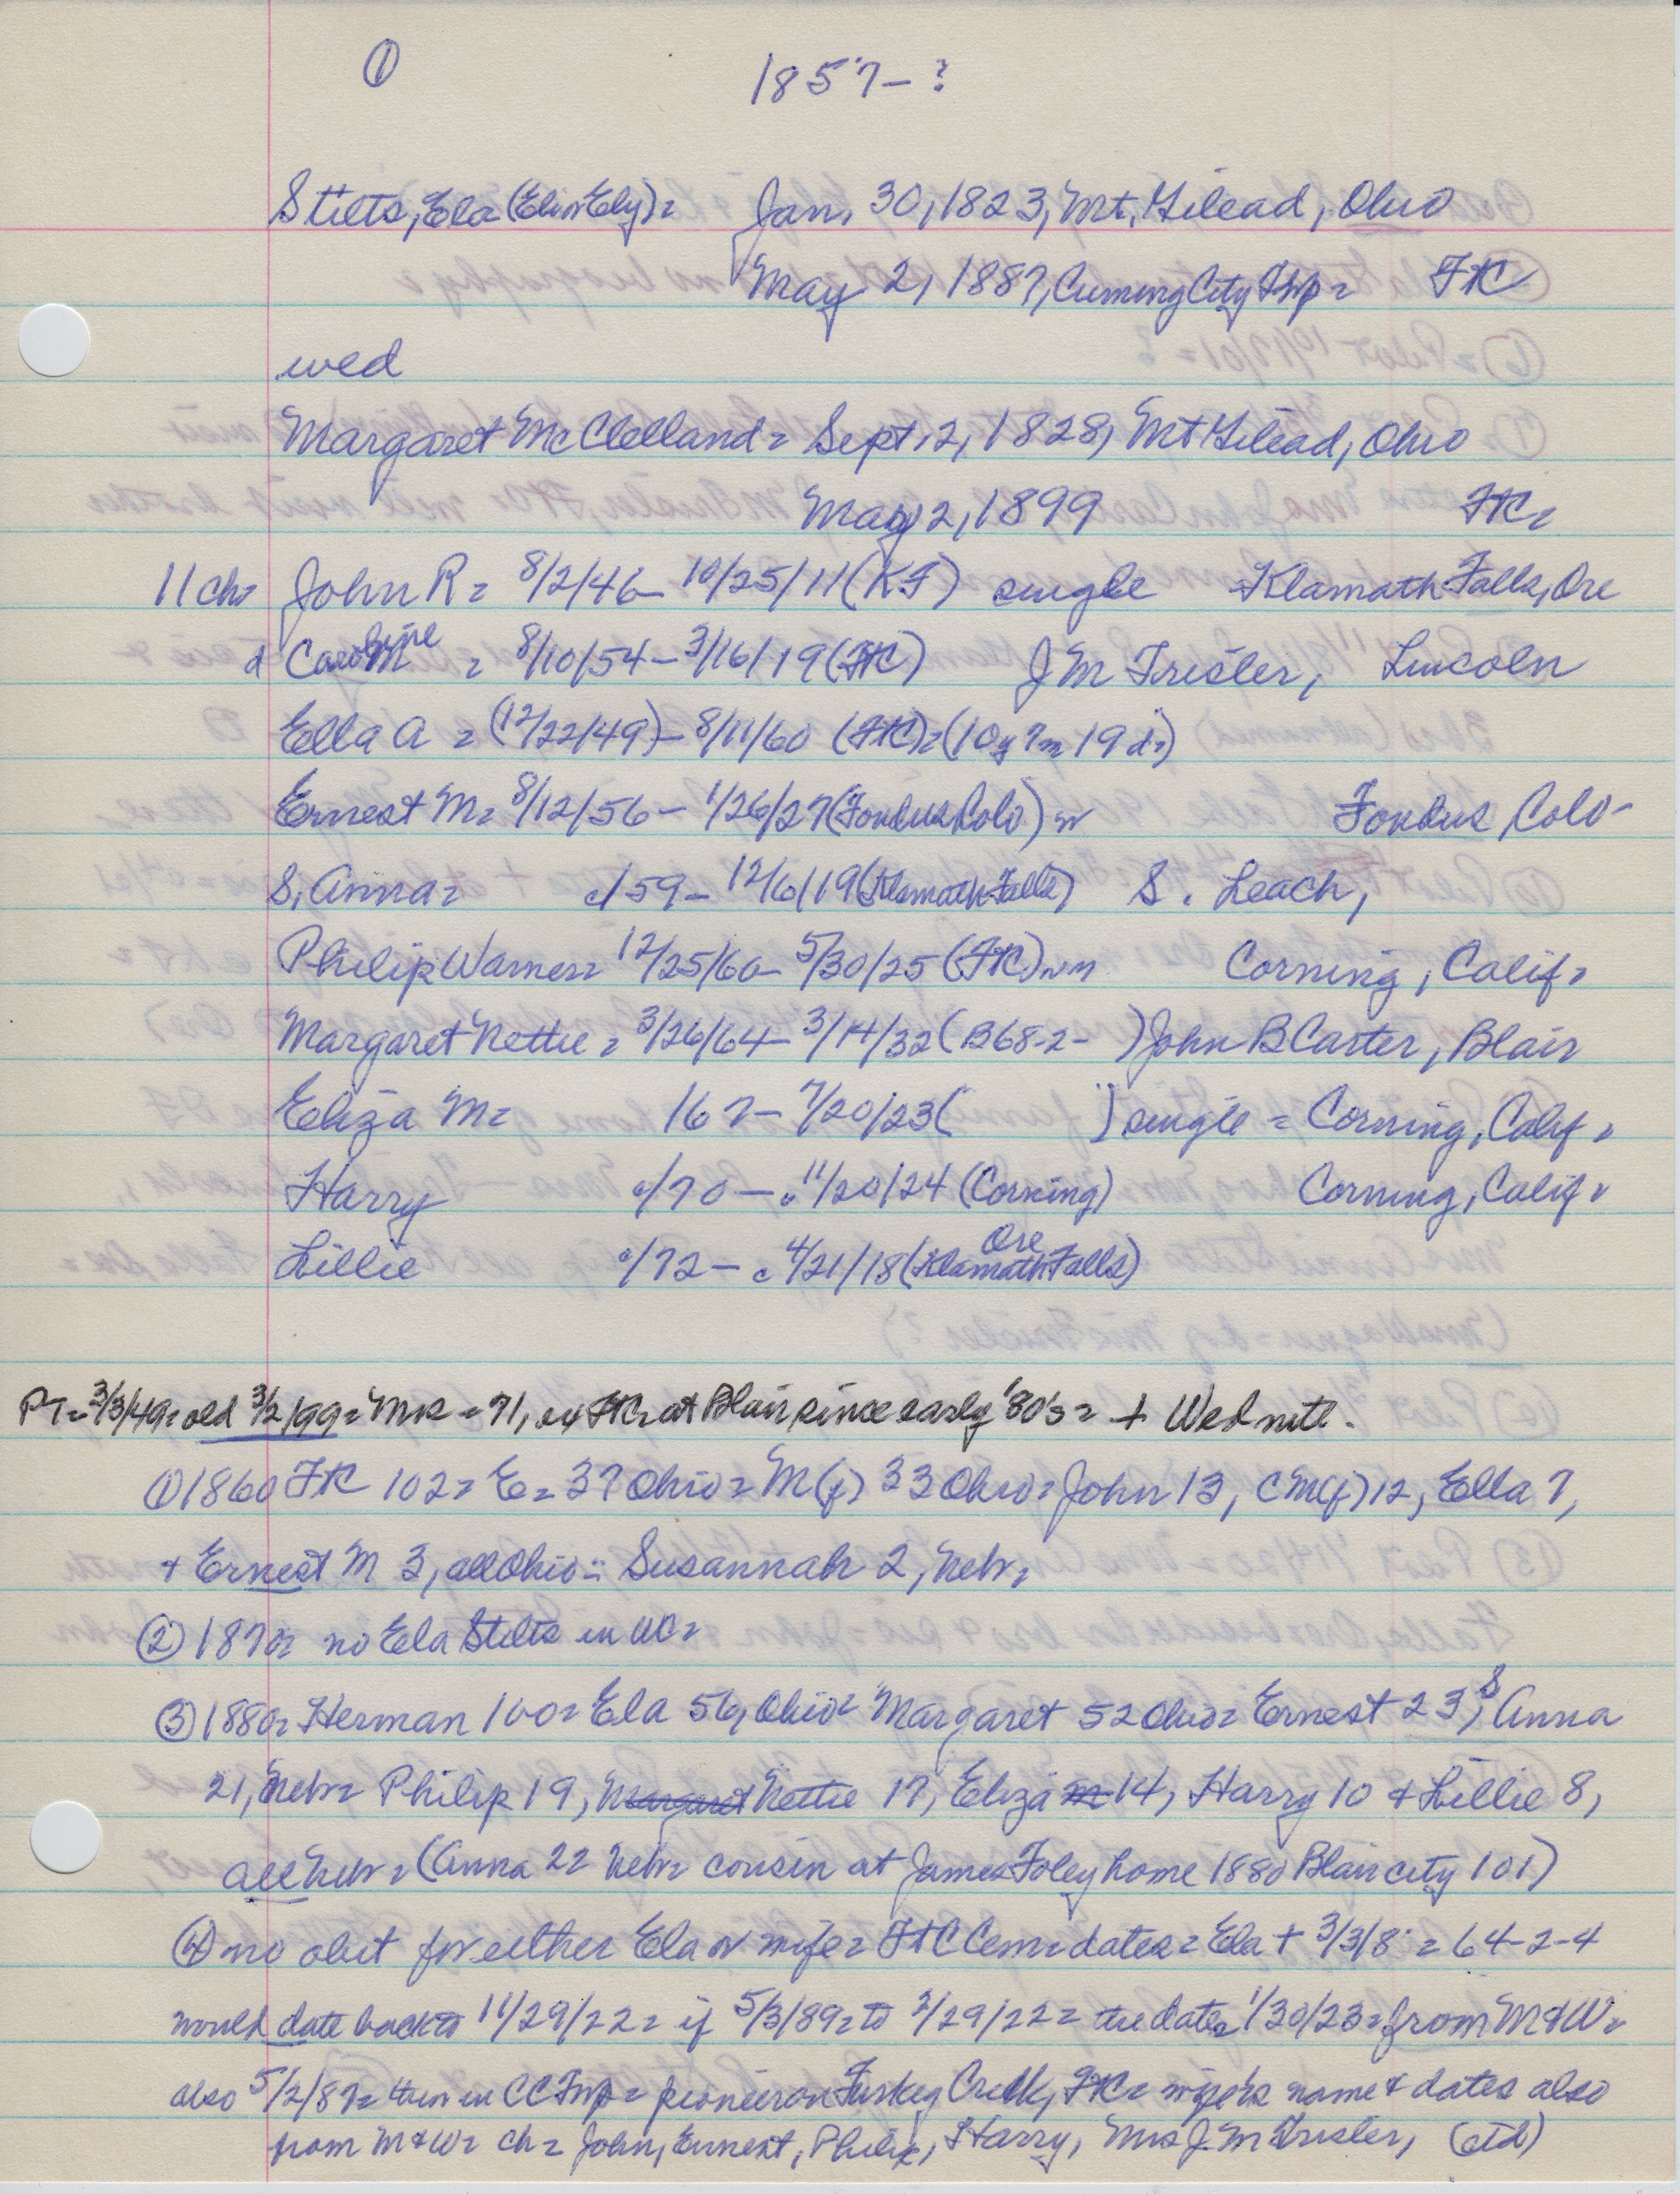 ① 1857–?
Stilts, Ela (Eli or Ely) = Jan. 30, 1823, Mt. Gilead, Ohio
May 2, 1887, Cuming City Twp = FtC
wed
Margaret McClelland = Sept. 2, 1828, Mt Gilead, Ohio
May 2, 1899 FtC =
11 ch= John R = 8/2/46– 10/25/11 (KF) single Klamath Falls, Ore
d Caroline M = 8/10/54– 3/16/19 (FtC) J M Trisler, Lincoln
Ella A = (12/22/49)– 8/11/60 (FtC) = (10y 7m 19d=)
Ernest M = 8/12/56– 1/26/27 (Fondus Colo) Fondus Colo–
S. Anna = c/59– 12/6/19 (Klamath Falls) S. Leach,
Philip Warner = 12/25/60– 5/30/25 (FtC) Corning, Calif =
Margaret Nettie = 3/26/64– 3/14/32 (B68-2- ) John B Carter, Blair
Eliza M = /67– 7/20/23 ( ) single = Corning, Calif =
Harry c/70 – c 11/20/24 (Corning) Corning, Calif =
Lillie c/72 – c 4/21/18 (Klamath Falls) Ore
PT = 3/3/49 = old 3/2/99 = Mrs = 71, ex FtC = at Blair since early '80's = + Wed nite.
① 1860 FtC 102 = E = 37 Ohio = M (f) 33 Ohio = John 13, C M (f) 12, Ella 7,
+ Ernest M 3, all Ohio = Susannah 2, Nebr =
② 1870 = no Ela Stilts in WC =
③ 1880 = Herman 100 = Ela 56, Ohio = Margaret 52 Ohio = Ernest 23, S Anna
21, Nebr = Philip 19, Margaret Nettie 17, Eliza M 14, Harry 10 + Lillie 8,
all Nebr = (Anna 22 Nebr = cousin at James Foley home 1880 Blair city 101)
④ no obit for either Ela or wife = FtC Cem = dates = Ela + 3/3/8 = 64-2-4
would date back to 11/29/22 = if 5/3/89 = to 2/29/22 = the date 1/30/23 = from M+W =
also 5/2/87 = then in CC Twp = pioneer on Turkey Creek, FtC = wife's name + dates also
from M+W = ch = John, Ernest, Philip, Harry, Mrs J. M Trisler, (ctd)